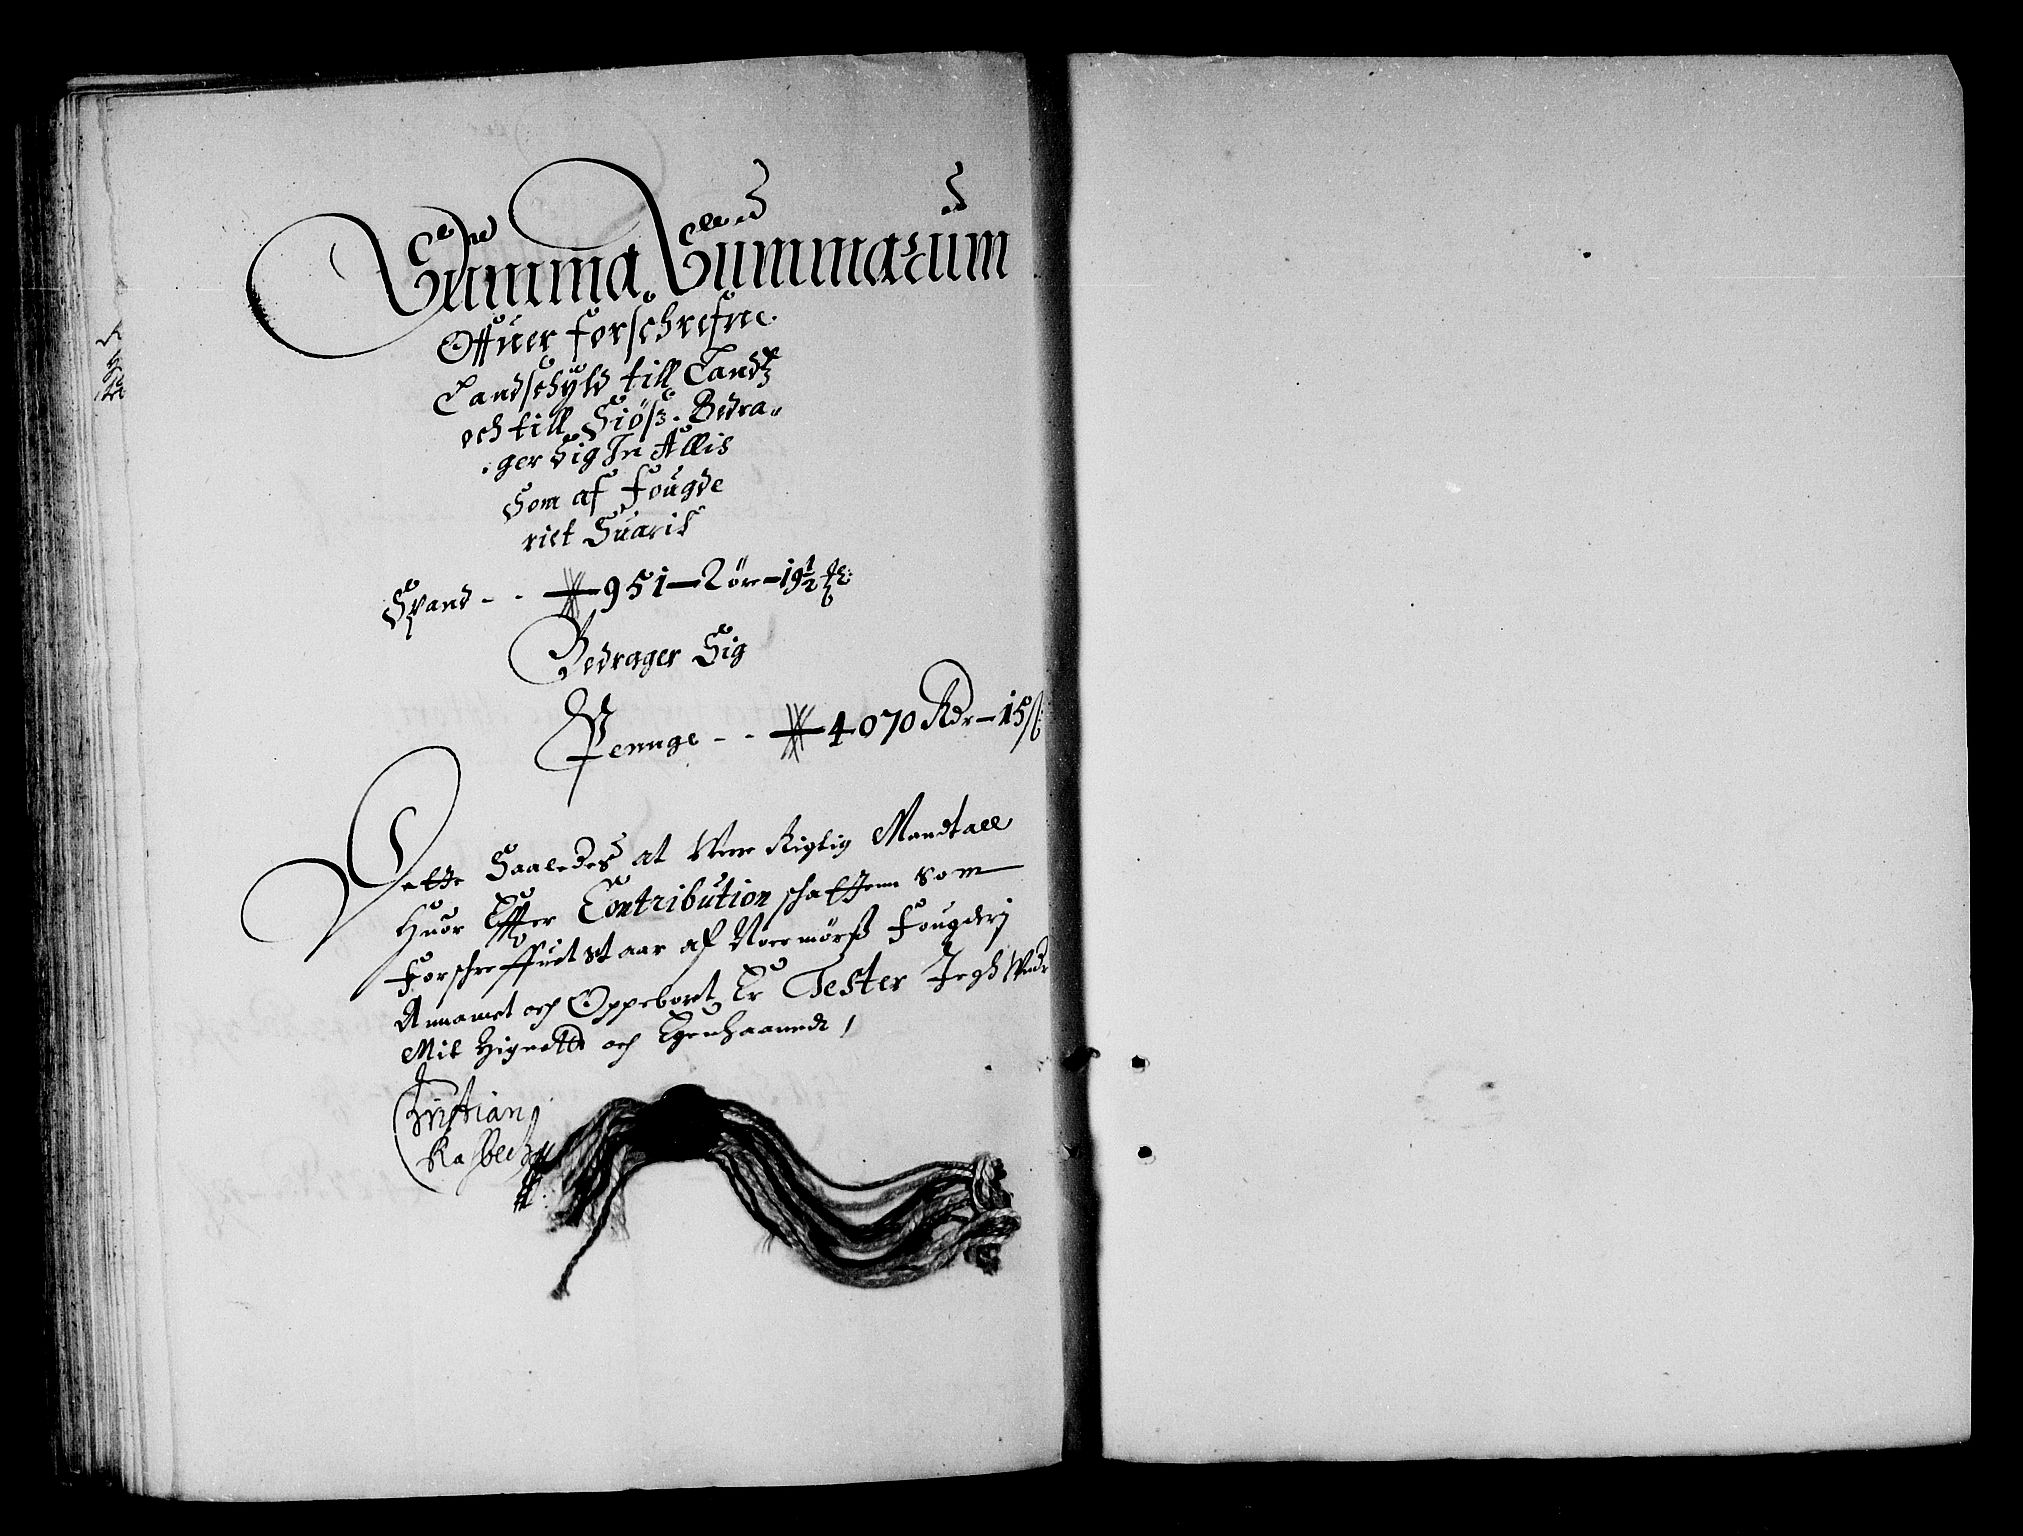 Summa Summarum
Offuer forschrefne
Landschÿld till Landtz
och till Siös. Bedra-
ger Sig In Allis
Som af fougde
riet Suaris
Spand - - 951 - 2 öre - 19½
Bedrager Sig
Penuge - - 4070 Rdr - 15 ß
Dette Saaledes at Were Rigtig Mandtall
Huor Effter Contribution schattenn som
Forschreffuet st aar af Noermörß Fougderj
Annamet och Oppeboret Er Tester Jegh Med
Mit Zignette och Egenhaannd /
Christian